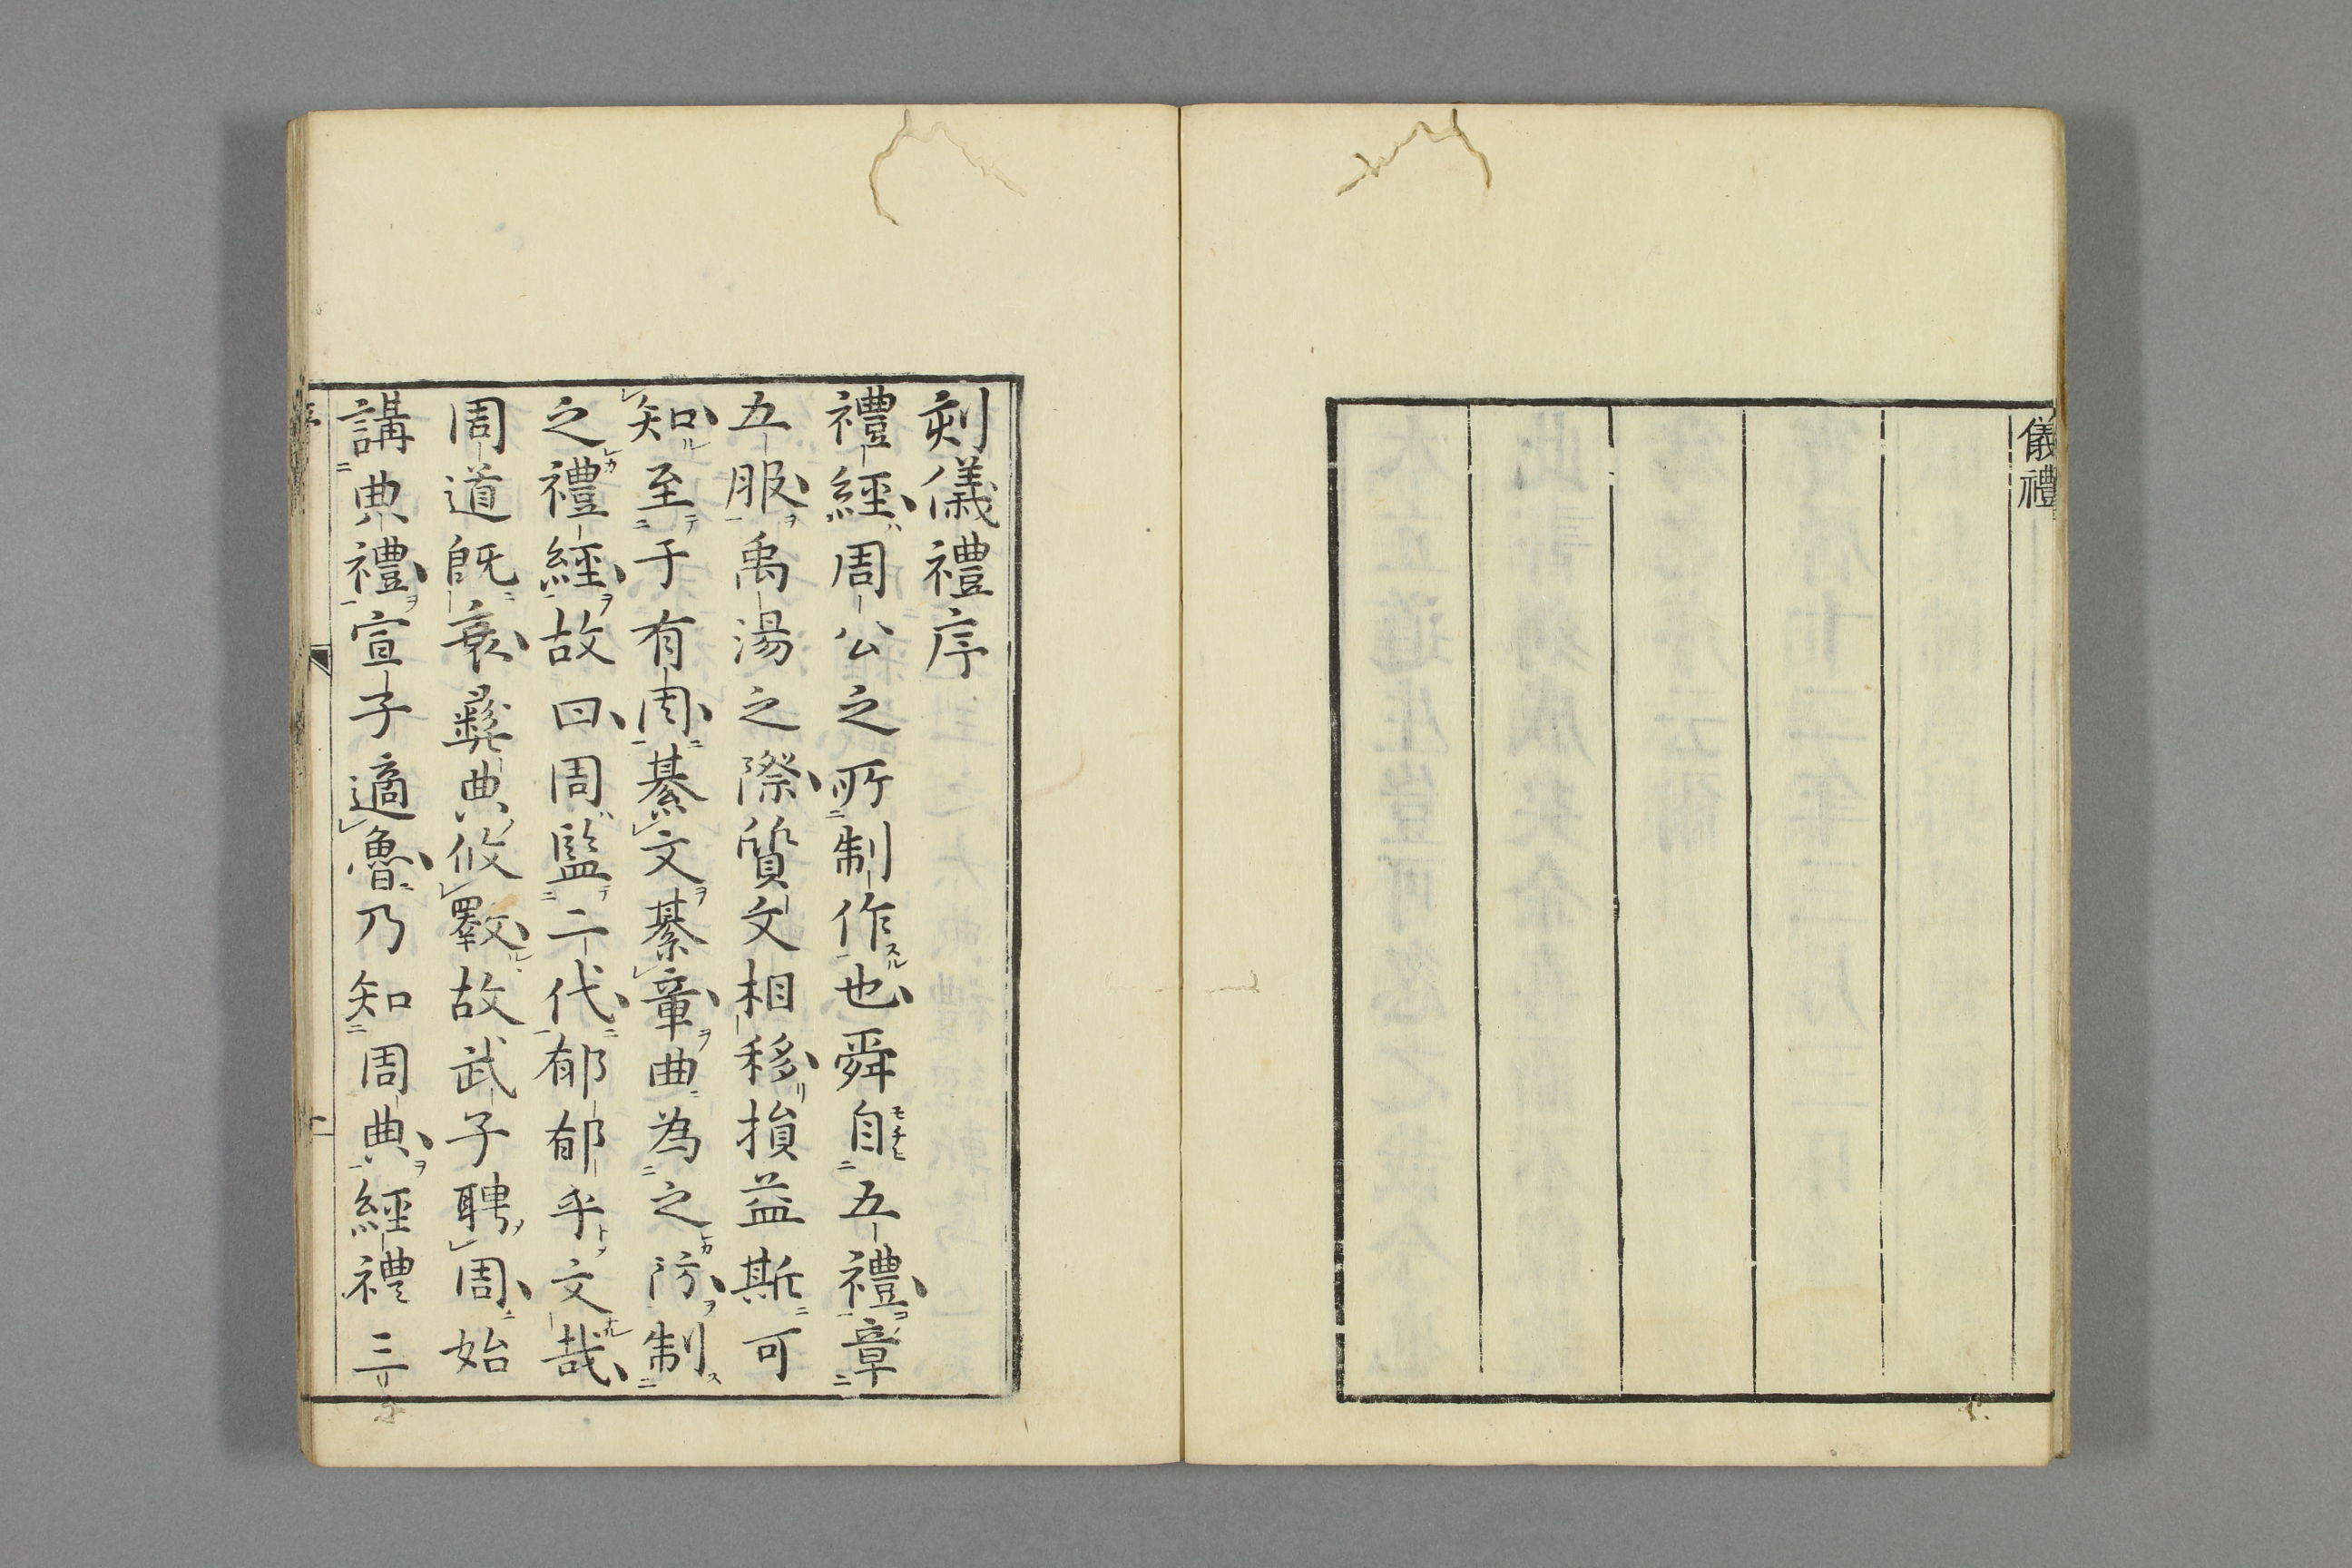 儀禮
刻儀禮序
禮經周公之所制作也舜自五禮章
五服禹湯之際質文相移損益斯可
知至于有周綦文綦章曲為之防制
之禮經故曰周監二代郁郁乎文哉
周道既衰彞典攸斁故武子聘周始
講典禮宣子適魯乃知周典經禮三